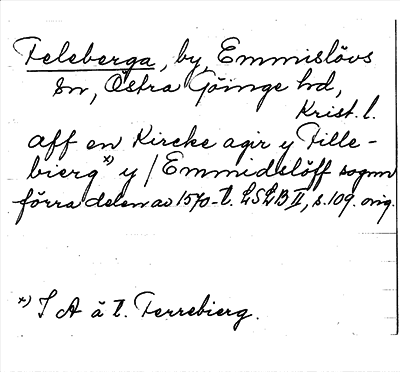 Feleberga, by, Emmislövs
sn, Östra Göinge hd,
Krist. l.
aff en Kircke agir y Fille-
bierg*) y / Emmidslöff sognn
förra delen av 1570-t. LSLB II, s. 109. orig.
*) I A ä t. Ferrebierg.